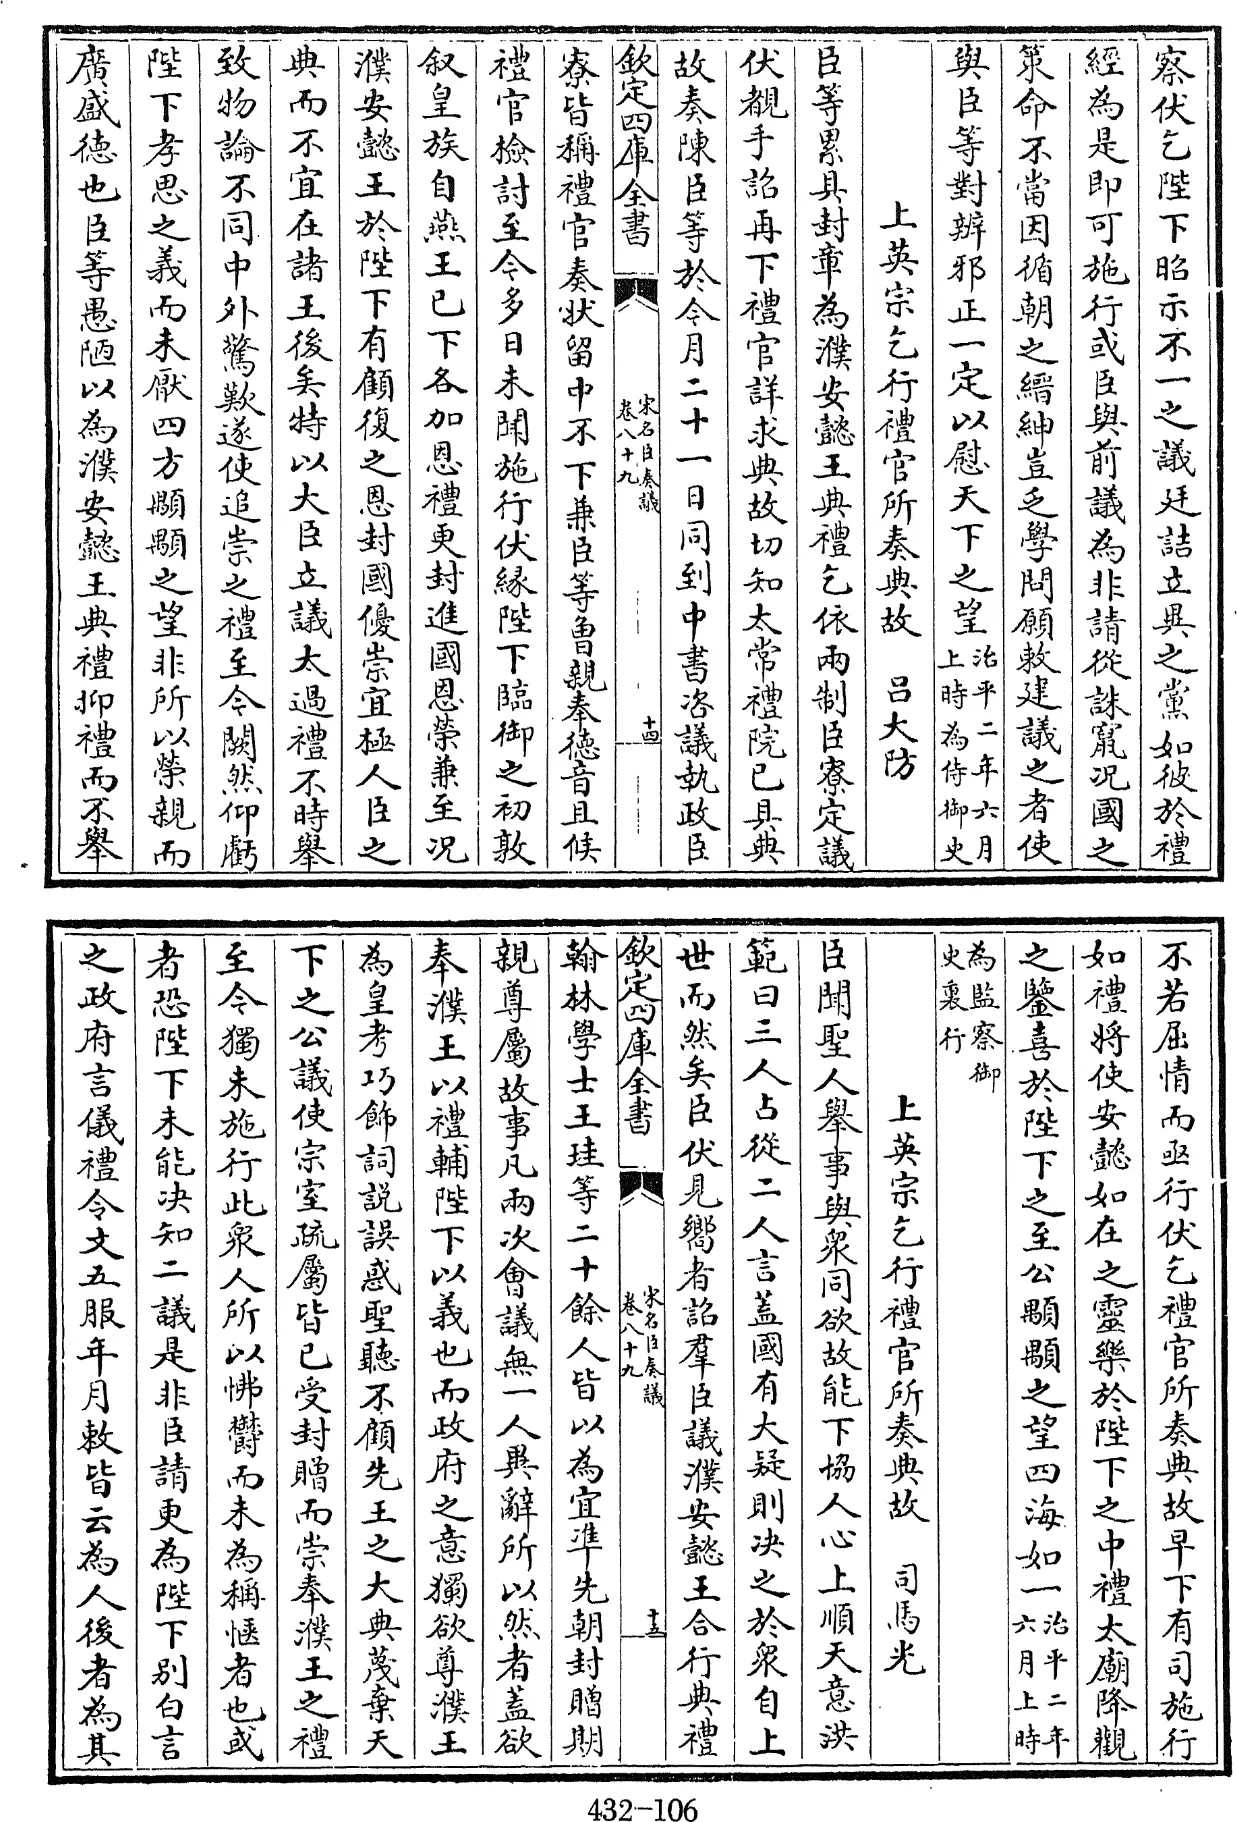 察伏乞陛下昭示不一之議廷詰立異之黨如彼於禮
經為是即可施行或臣與前議為非請從誅竄况國之
策命不當因循朝之縉紳豈乏學問願敕建議之者使
與臣等對辨邪正一定以慰天下之望治平二年六月上時為侍御史
上英宗乞行禮官所奏典故　呂大防
臣等累具封章為濮安懿王典禮乞依兩制臣寮定議
伏覩手詔再下禮官詳求典故切知太常禮院已具典
故奏陳臣等於今月二十一日同到中書咨議執政臣
欽定四庫全書　宋名臣奏議卷八十九　十四
寮皆稱禮官奏狀留中不下兼臣等魯親奉德音且候
禮官檢討至今多日未聞施行伏緣陛下臨御之初敦
叙皇族自燕王已下各加恩禮更封進國恩榮兼至况
濮安懿王於陛下有顧復之恩封國優崇宜極人臣之
典而不宜在諸王後矣特以大臣立議太過禮不時舉
致物論不同中外驚歎遂使追崇之禮至今闕然仰虧
陛下孝思之義而未厭四方顒顒之望非所以榮親而
廣盛德也臣等愚陋以為濮安懿王典禮抑禮而不舉
不若屈情而亟行伏乞禮官所奏典故早下有司施行
如禮將使安懿如在之靈樂於陛下之中禮太廟降觀
之鑒喜於陛下之至公顒顒之望四海如一治平二年六月上時
為監察御史裏行
上英宗乞行禮官所奏典故　司馬光
臣聞聖人舉事與衆同欲故能下協人心上順天意洪
範曰三人占從二人言蓋國有大疑則决之於衆自上
世而然矣臣伏見嚮者詔羣臣議濮安懿王合行典禮
欽定四庫全書　宋名臣奏議卷八十九　十五
翰林學士王珪等二十餘人皆以為宜準先朝封贈期
親尊屬故事凡兩次會議無一人異辭所以然者蓋欲
奉濮王以禮輔陛下以義也而政府之意獨欲尊濮王
為皇考巧飾詞説誤惑聖聽不顧先王之大典蔑棄天
下之公議使宗室疏屬皆已受封贈而崇奉濮王之禮
至今獨未施行此衆人所以怫鬱而未為稱愜者也或
者恐陛下未能决知二議是非臣請更為陛下別白言
之政府言儀禮令文五服年月敕皆云為人後者為其
432-106